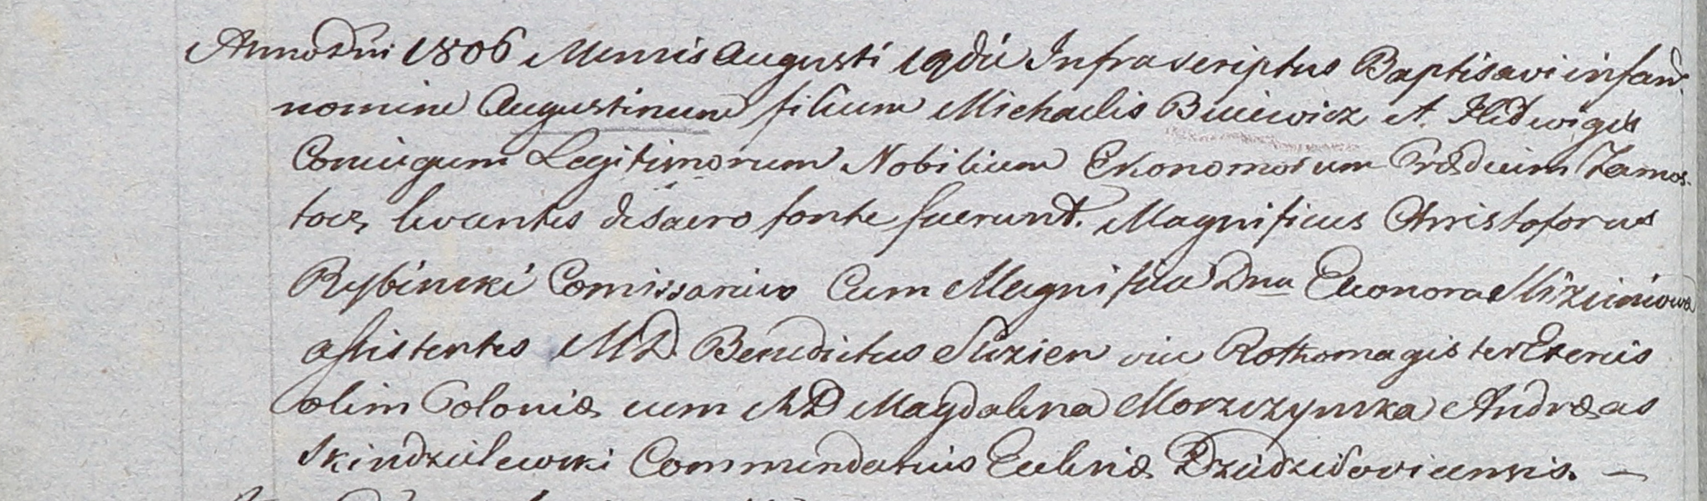 Anno Dni 1806 Mensis Augusti 19 die Infrascriptus Baptisavi infan
nomine Augustinum filium Michaelis et Hedwigis
Coniugum Legitimorum Nobilium Ekonomorum Prædium Zamos-
tocz levantes de sacro fonte fuerunt. Magnificus Christoforus
Rybinski Comissarius Cum Magnifica Dna Eleonora Slizieniowa
assistentes MD Benedictus Slizien vice Rothomagister Exercis
olim Poloniæ cum MD Magdalena Morzczynska Andræas
Skindzielewski Commendarius Eccleriæ Dziedziloviciensis. —